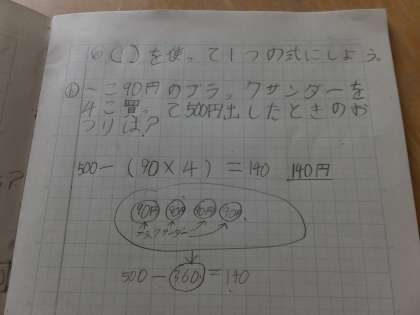 16( )を使って1つの式にしよう。
一こ90円のブラックサンダーを
4こ買って500円出したときのお
つりは?
500−(90×4)=140 140円
90円 90円 90円 90円
ブラックサンダー
500−360=140